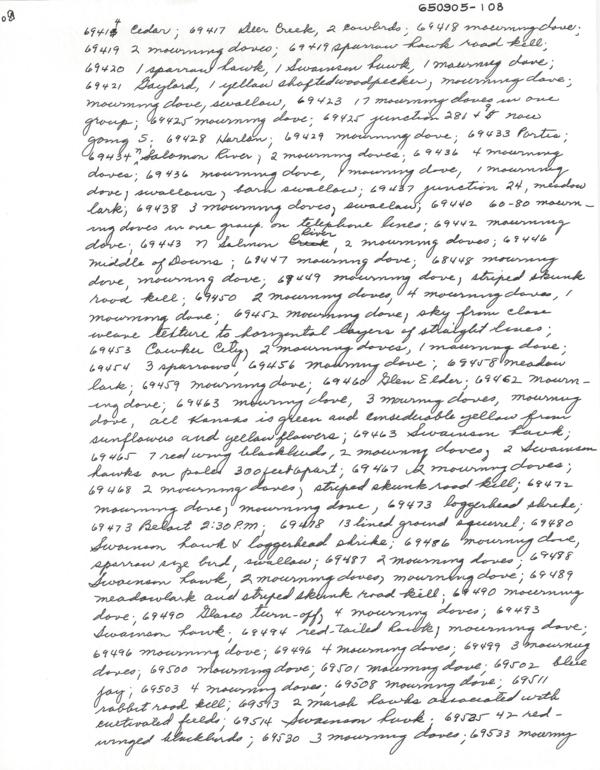 650905-108
69414 Cedar; 69417 Deer Creek, 2 cowbirds; 69418 mourning dove;
69419 2 mourning doves; 69419 sparrow hawk road kill;
69420 1 sparrow hawk, 1 Swainson hawk, 1 mourning dove;
69421 Gaylord, 1 yellow shafted woodpecker, mourning dove;
mourning dove, swallow, 69423 17 mourning doves in one
group; 69425 mourning dove; 69425 junction 281 + 9 now
going S; 69428 Harlan; 69429 mourning dove; 69433 Portis;
69434 N Solomon River, 2 mourning doves; 69436 4 mourning
doves; 69436 mourning dove, 1 mourning dove, 1 mourning
dove, swallows, barn swallow; 69437 junction 24, meadow
lark; 69438 3 mourning doves, swallow; 69440 60-80 mourn-
ing doves in one group on telephone lines; 69442 mourning
dove; 69443 N Salmon River, 2 mourning doves; 69446
middle of Downs; 69447 mourning dove; 68448 mourning
dove, mourning dove; 69449 mourning dove, striped skunk
road kill; 69450 2 mourning doves, 4 mourning doves, 1
mourning dove; 69452 mourning dove, sky from close
weave texture to horizontal layers of straight lines;
69453 Cawker City, 2 mourning doves, 1 mourning dove;
69454 3 sparrows, 69456 mourning dove; 69458 meadow
lark; 69459 mourning dove; 69460 Glen Elder; 69462 mourn-
ing dove; 69463 mourning dove, 3 mourning doves, mourning
dove, all Kansas is green and considerable yellow from
sunflowers and yellow flowers; 69463 Swainson hawk;
69465 7 red wing blackbirds, 2 mourning doves, 2 Swainson
hawks on poles 300 feet apart; 69467 12 mourning doves;
69468 2 mourning doves, striped skunk road kill; 69472
mourning dove, mourning dove, 69473 loggerhead shrike;
69473 Beloit 2:30 PM; 69478 13 lined ground squirrel; 69480
Swainson hawk & loggerhead shrike; 69486 mourning dove,
sparrow size bird, swallow; 69487 2 mourning doves; 69488
Swainson hawk, 2 mourning doves, mourning dove; 69489
meadowlark and striped skunk road kill; 69490 mourning
dove; 69490 Glasco turn-off, 4 mourning doves; 69493
Swainson hawk; 69494 red-tailed hawk, mourning dove;
69496 mourning dove; 69496 4 mourning doves; 69499 3 mourning
doves; 69500 mourning dove; 69501 mourning dove; 69502 blue
jay; 69503 4 mourning doves; 69508 mourning dove; 69511
rabbit road kill; 69513 2 marsh hawks associated with
cultivated fields; 69514 Swainson hawk; 69525 42 red-
winged blackbirds; 69530 3 mourning doves; 69533 mourning